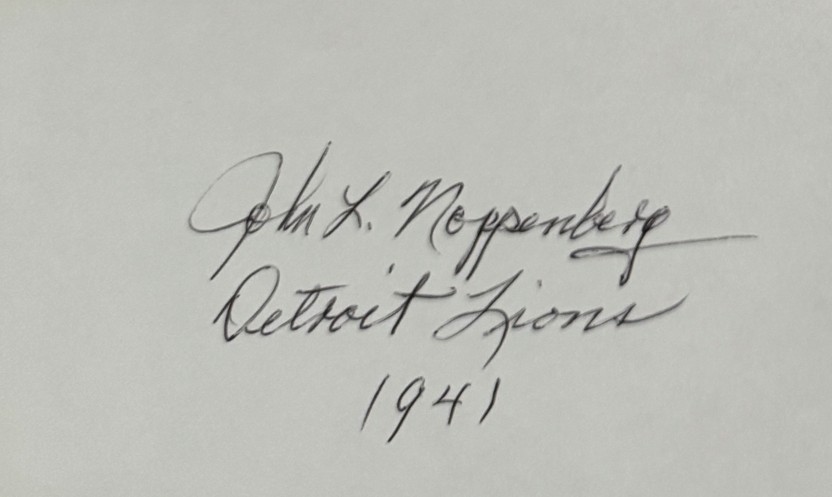 John L. Noppenberg
Detroit Lions
1941